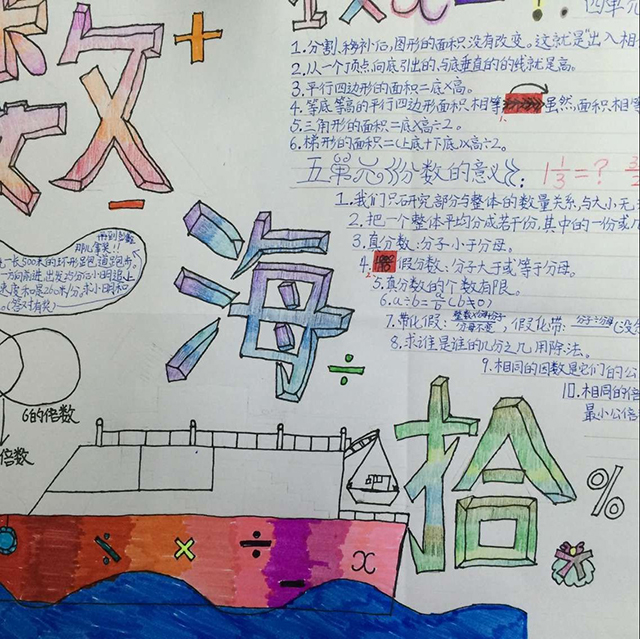 四单元
1.分割、移补后,图形的面积没有改变。这就是"出入相
2.从一个顶点,向底引出的,与底垂直的的线就是高。
3.平行四边形的面积=底×高。
4.等底等高的平行四边形面积相等 虽然,面积相等
5.三角形的面积=底×高÷2。
6.梯形的面积=(上底+下底)×高÷2。
五单元《分数的意义》: 1 1/3 = ?
1.我们只研究,部分与整体的数量关系,与大小无
2.把一个整体平均分成若干份,其中的一份或几
3.真分数:分子小于分母。
4. 假分数:分子大于或等于分母。
5.真分数的个数有限。
6.a÷b=a/b(b≠0)
7.带化假: 假化带:分子÷分母
8.求谁是谁的几分之几用除法。
9.相同的因数是它们的公
10.相同的倍
最小公倍
数
海
拾
+
−
÷
一长500米的环形
6的倍数
倍数
%
÷
×
÷
−
x